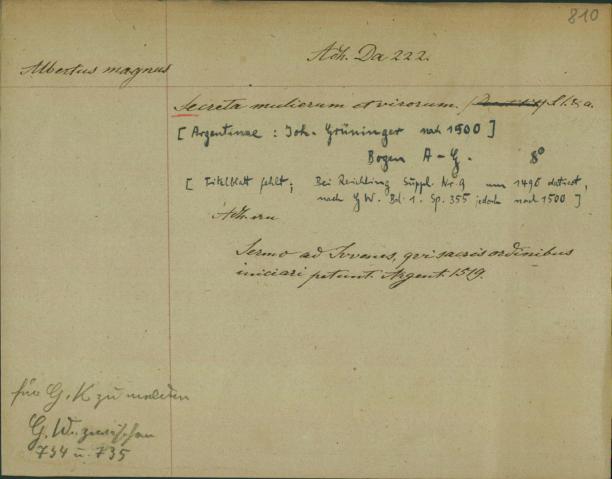 810
Ach. Da 222.
Albertus magnus
Secreta mulierum et virorum. S. l. & a.
[ Argentinae : Joh. Grüninger nach 1500 ]
Bogen A - G. 8°
[ Titelblatt fehlt; Bei Reichling Suppl. Nr. 9 um 1496 datiert,
nach G W. Bd. 1. Sp. 355 jedoch nach 1500 ]
Sermo ad Iuvenes, qui sacris ordinibus
iniciari petunt. Argent. 1519.
für G. K zu melden
G. W. zwischen
734 u. 735